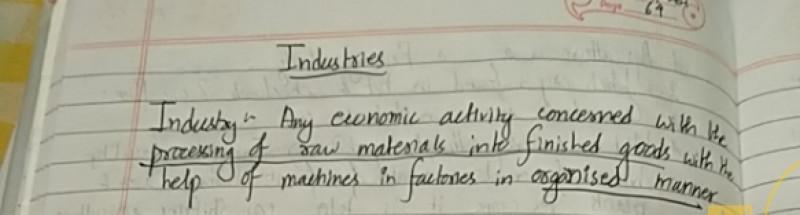 Page 64
Industries
Industry :- Any economic activity concerned with the
processing of raw materials into finished goods with the
help of machines in factories in organised manner